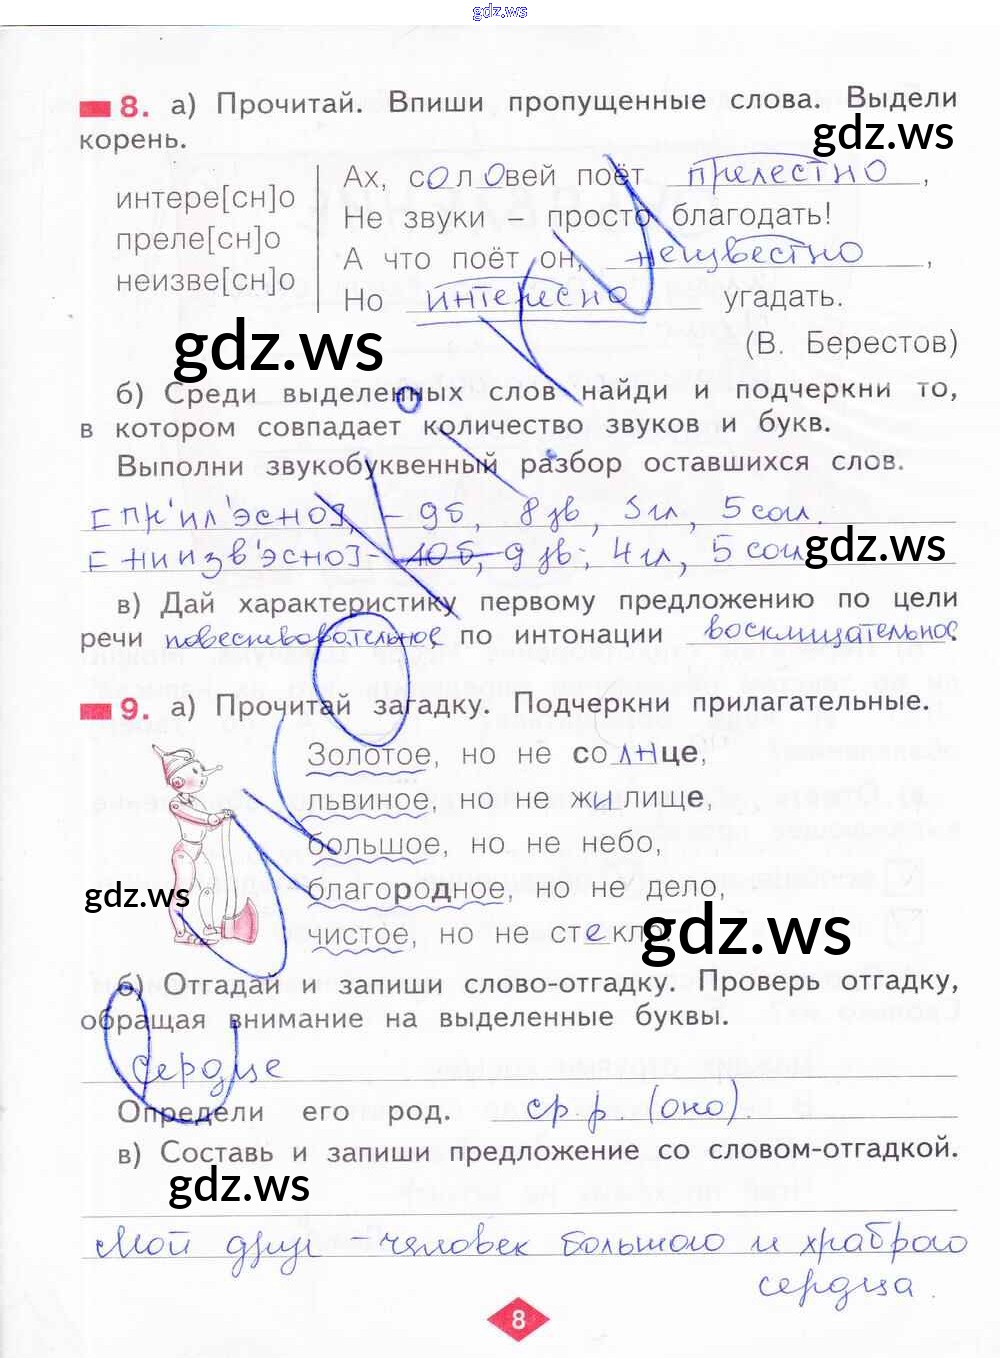 gdz.ws
8. а) Прочитай. Впиши пропущенные слова. Выдели
корень.
gdz.ws
интере[сн]о
преле[сн]о
неизве[сн]о
Ах, соловей поёт прелестно,
Не звуки – просто благодать!
А что поёт он, неизвестно,
Но интересно угадать.
(В. Берестов)
gdz.ws
б) Среди выделенных слов найди и подчеркни то,
в котором совпадает количество звуков и букв.
Выполни звукобуквенный разбор оставшихся слов.
[пр'ил'эсно], – 9б, 8 зв, 3 гл, 5 согл.
[ниизв'эсно] – 10б, 9 зв; 4 гл, 5 согл
gdz.ws
в) Дай характеристику первому предложению по цели
речи повествовательное, по интонации восклицательное.
9. а) Прочитай загадку. Подчеркни прилагательные.
Золотое, но не солнце,
львиное, но не жилище,
большое, но не небо,
благородное, но не дело,
чистое, но не стекло.
gdz.ws
gdz.ws
б) Отгадай и запиши слово-отгадку. Проверь отгадку,
обращая внимание на выделенные буквы.
сердце
Определи его род. ср.р. (оно).
в) Составь и запиши предложение со словом-отгадкой.
gdz.ws
Мой друг – человек большого и храброго
сердца.
8